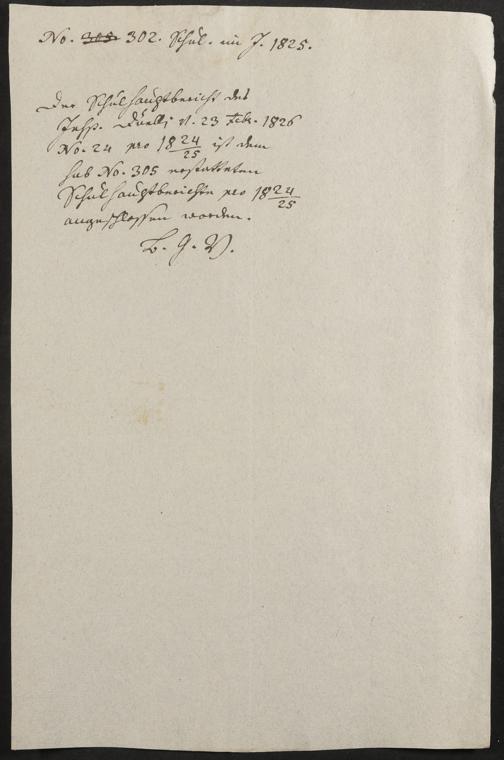 No. 305 302. Schul. im J. 1825.
Der Schulhauptbericht des
Insp. v. 23 Febr. 1826
No. 24 pro 18 24/25 ist dem
sub No. 305 erstatteten
Schulhauptberichte pro 18 24/25
angeschlossen worden.
B. G. V.